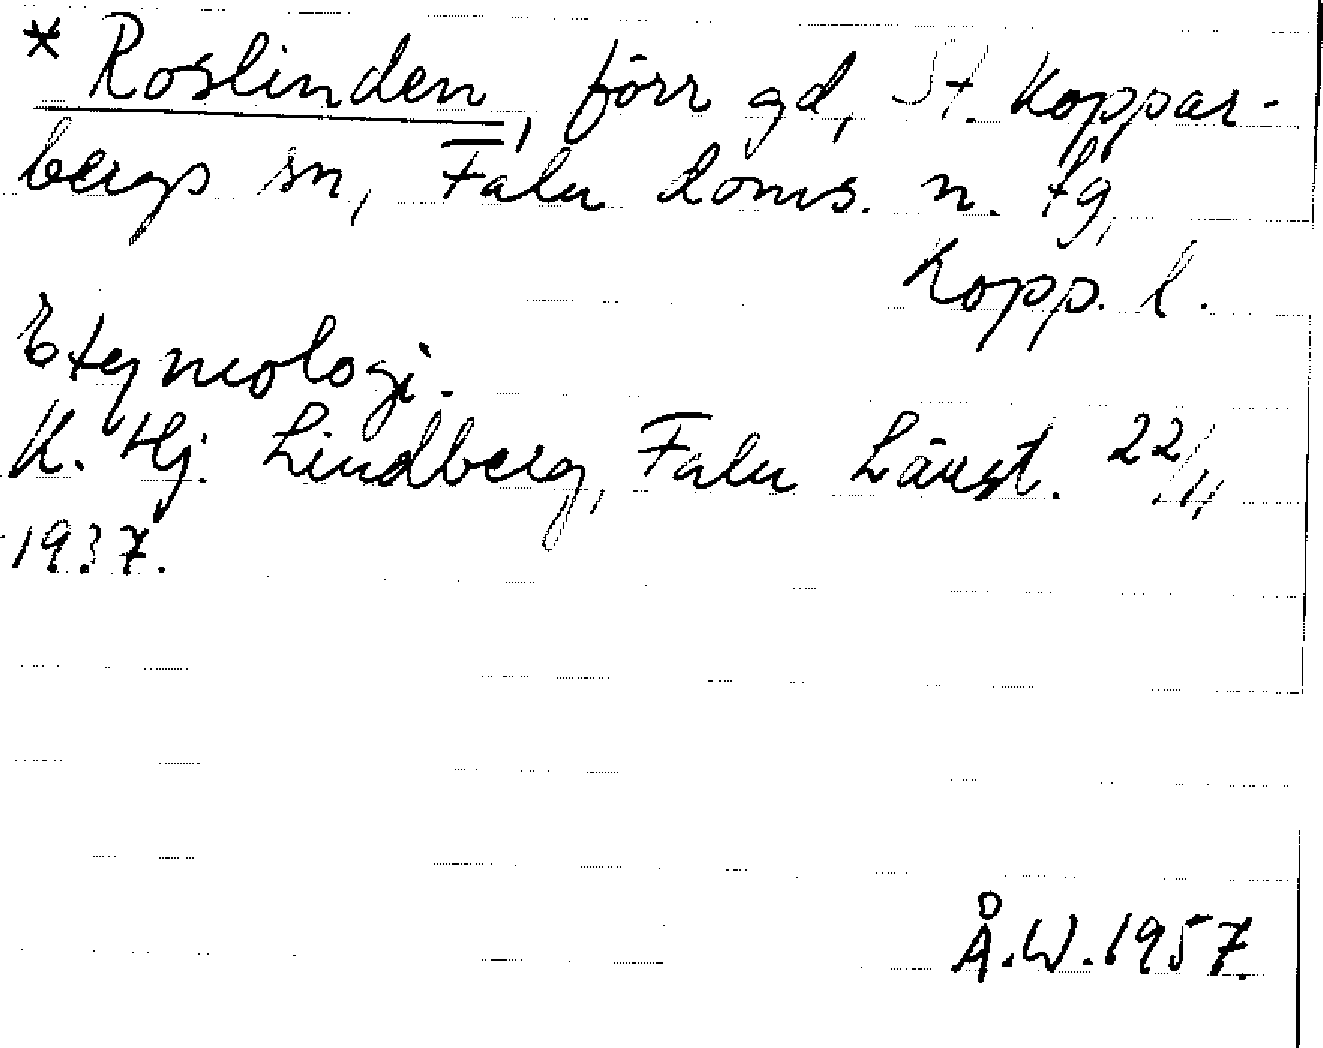 * Roslinden, förr gd, St. Koppar-
bergs sn, Falu doms. n. tg,
Kopp. l.
Etymologi.
K. Hj. Lindberg, Falu Länst. 22/11
1937.
Å.W. 1957.